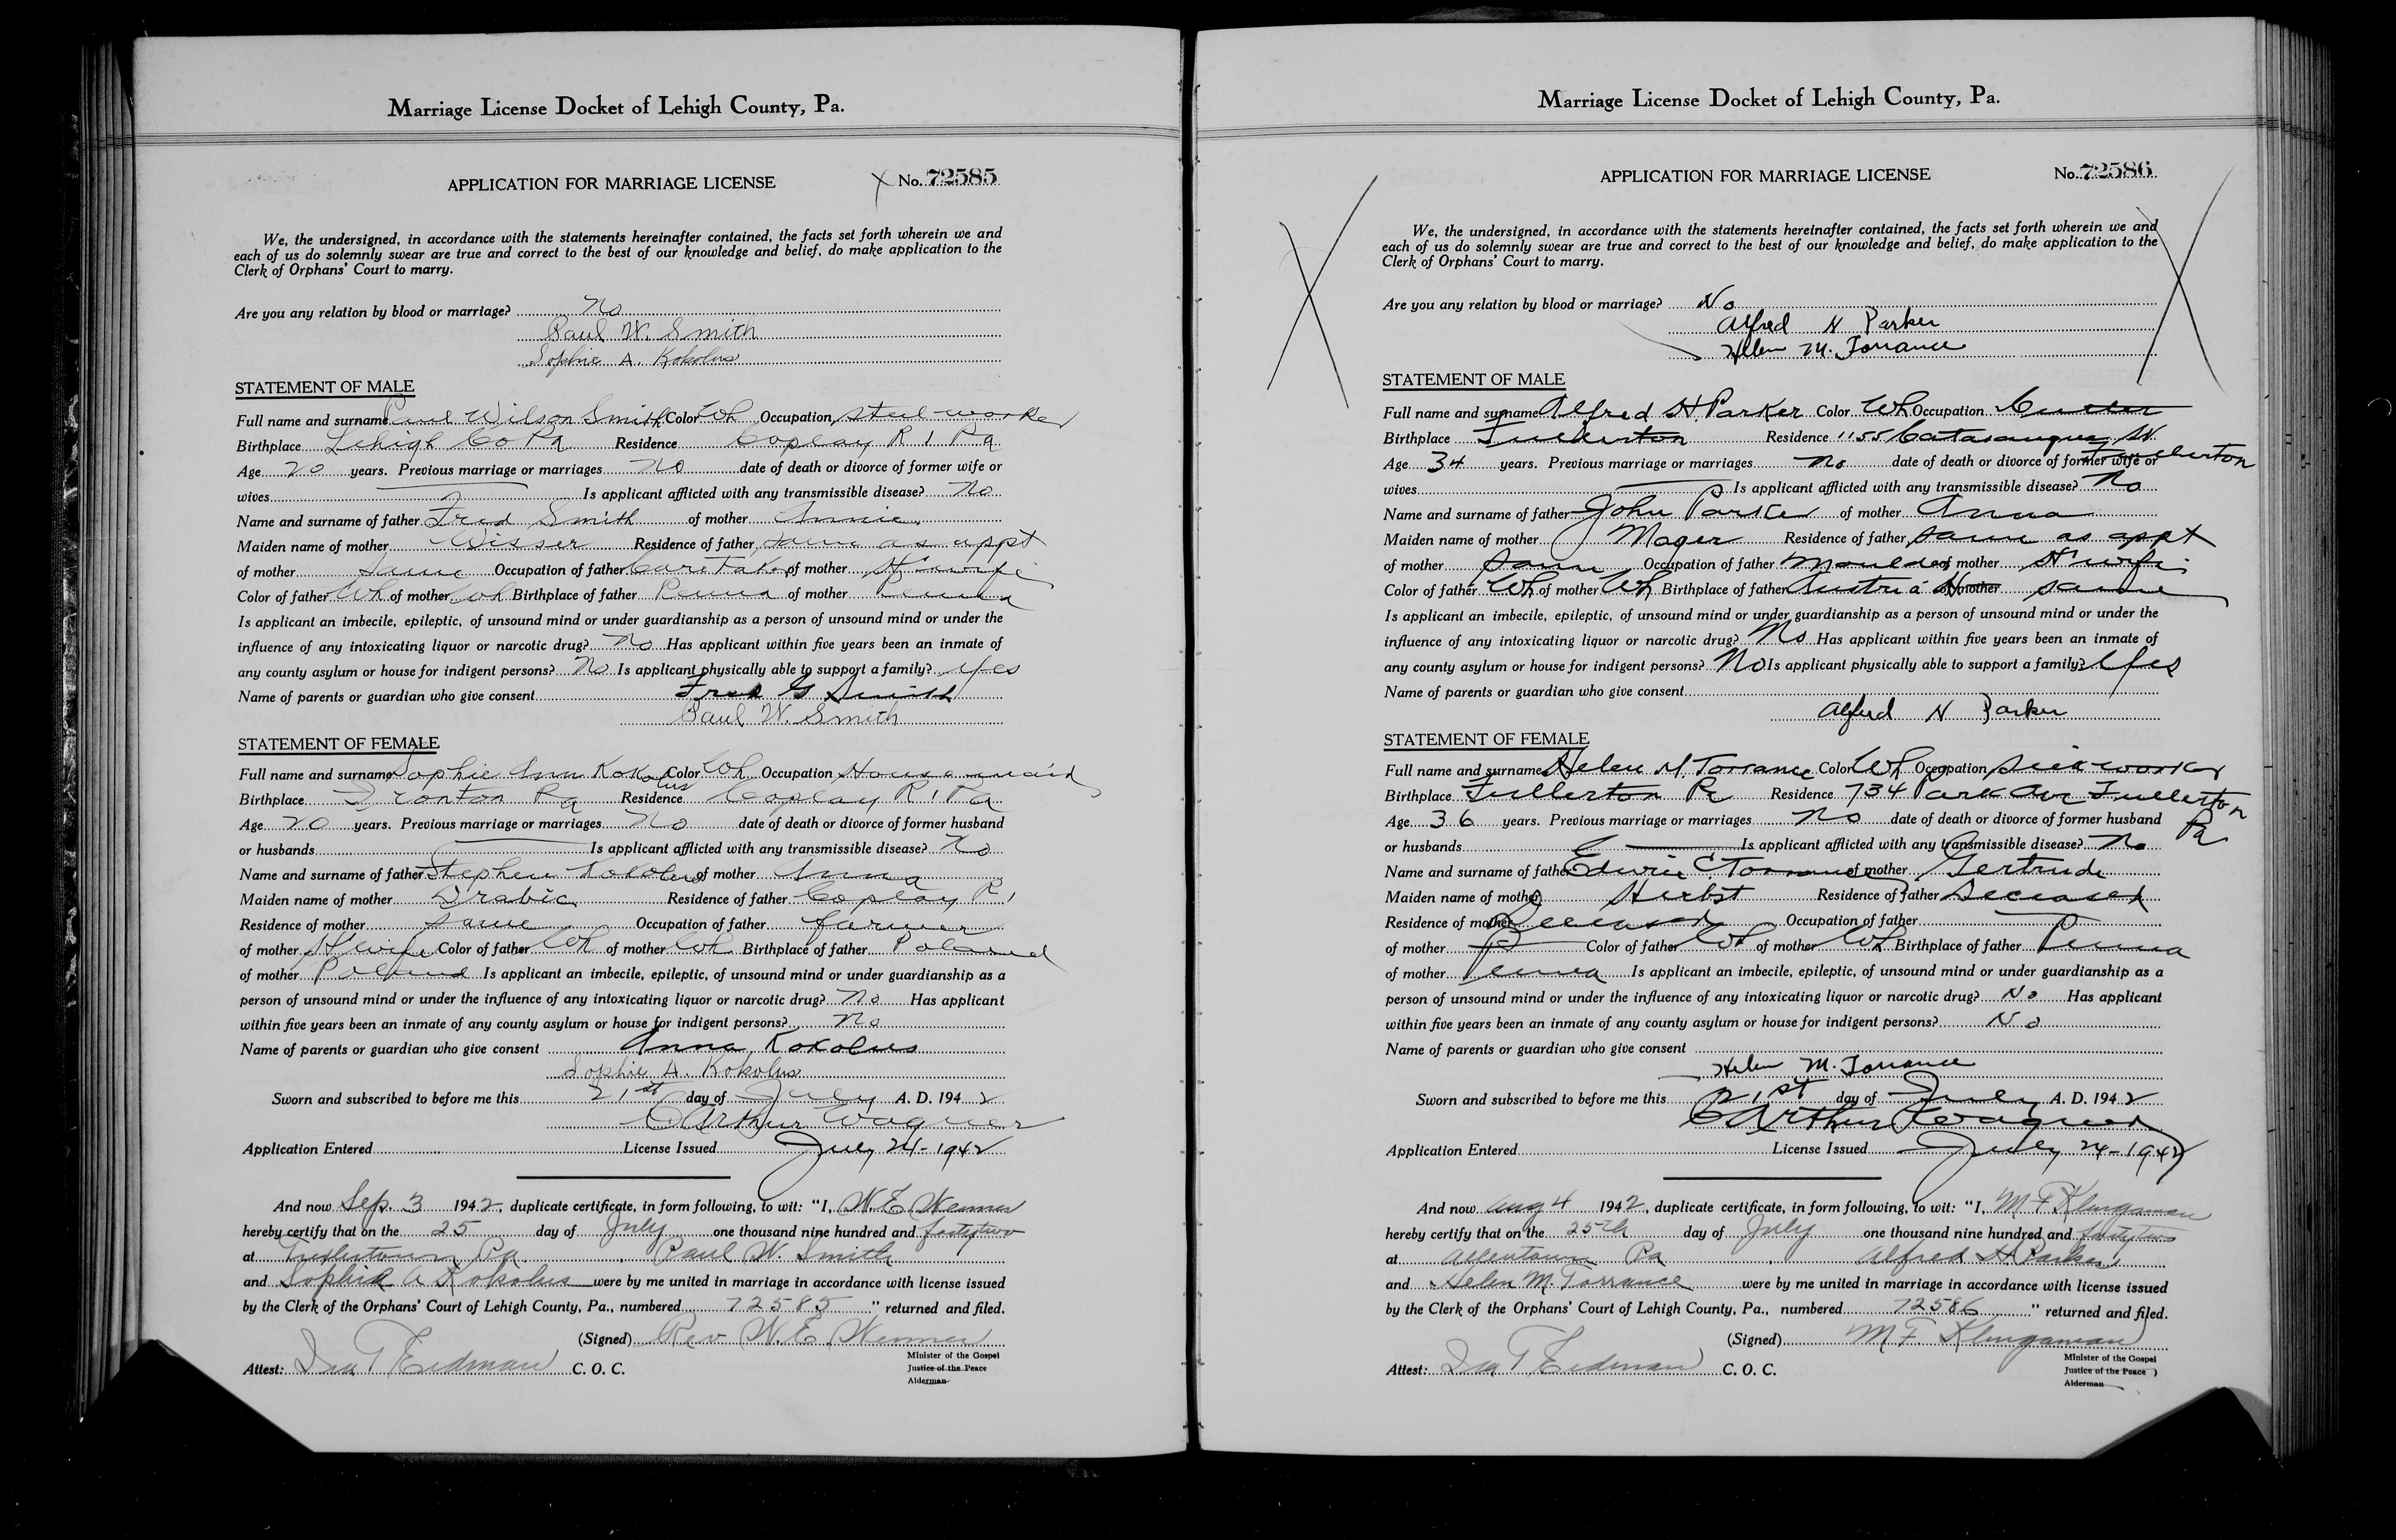 Marriage License Docket of Lehigh County, Pa.
APPLICATION FOR MARRIAGE LICENSE X No. 72585
We, the undersigned, in accordance with the statements hereinafter contained, the facts set forth wherein we and
each of us do solemnly swear are true and correct to the best of our knowledge and belief, do make application to the
Clerk of Orphans' Court to marry.
Are you any relation by blood or marriage? No
Paul W. Smith
Sophie A. Kokolus
STATEMENT OF MALE
Full name and surname Paul Wilson Smith Color Wh Occupation steel worker
Birthplace Lehigh Co Pa Residence Coplay R 1 Pa
Age 20 years. Previous marriage or marriages No date of death or divorce of former wife or
wives Is applicant afflicted with any transmissible disease? No
Name and surname of father Fred Smith of mother Annie
Maiden name of mother Wisser Residence of father same as appt
of mother same Occupation of father Caretaker of mother H'wife
Color of father Wh of mother Wh Birthplace of father Penna of mother Penna
Is applicant an imbecile, epileptic, of unsound mind or under guardianship as a person of unsound mind or under the
influence of any intoxicating liquor or narcotic drug? No Has applicant within five years been an inmate of
any county asylum or house for indigent persons? No Is applicant physically able to support a family? Yes
Name of parents or guardian who give consent Fred G Smith
Paul W. Smith
STATEMENT OF FEMALE
Full name and surname Sophie Ann Kokolus Color Wh Occupation House maid
Birthplace Ironton Pa Residence Coplay R 1 Pa
Age 20 years. Previous marriage or marriages No date of death or divorce of former husband
or husbands Is applicant afflicted with any transmissible disease? No
Name and surname of father Stephen Kokolus of mother Anna
Maiden name of mother Drabic Residence of father Coplay R 1
Residence of mother same Occupation of father farmer
of mother H'wife Color of father Wh of mother Wh Birthplace of father Poland
of mother Poland Is applicant an imbecile, epileptic, of unsound mind or under guardianship as a
person of unsound mind or under the influence of any intoxicating liquor or narcotic drug? No Has applicant
within five years been an inmate of any county asylum or house for indigent persons? No
Name of parents or guardian who give consent Anna Kokolus
Sophie A. Kokolus
Sworn and subscribed to before me this 21st day of July A. D. 1942
C Arthur Wagner
Application Entered License Issued July 24-1942
And now Sep. 3 1942, duplicate certificate, in form following, to wit: "I, W. E. Wenner
hereby certify that on the 25 day of July one thousand nine hundred and forty two
at Trexlertown Pa. Paul W. Smith
and Sophie A Kokolus were by me united in marriage in accordance with license issued
by the Clerk of the Orphans' Court of Lehigh County, Pa., numbered 72585 " returned and filed.
(Signed) Rev W. E. Wenner
Minister of the Gospel
Justice of the Peace
Alderman
Attest: Ira T Erdman C. O. C.
Marriage License Docket of Lehigh County, Pa.
APPLICATION FOR MARRIAGE LICENSE No. 72586
We, the undersigned, in accordance with the statements hereinafter contained, the facts set forth wherein we and
each of us do solemnly swear are true and correct to the best of our knowledge and belief, do make application to the
Clerk of Orphans' Court to marry.
Are you any relation by blood or marriage? No
Alfred H Parker
Helen M. Torrance
STATEMENT OF MALE
Full name and surname Alfred H Parker Color Wh Occupation
Birthplace Fullerton Residence 1155 Catasauqua St. Fullerton
Age 34 years. Previous marriage or marriages No date of death or divorce of former wife or
wives Is applicant afflicted with any transmissible disease? No
Name and surname of father John Parker of mother Anna
Maiden name of mother Mager Residence of father same as appt
of mother same Occupation of father Moulder of mother H'wife
Color of father Wh of mother Wh Birthplace of father Austria H of mother same
Is applicant an imbecile, epileptic, of unsound mind or under guardianship as a person of unsound mind or under the
influence of any intoxicating liquor or narcotic drug? No Has applicant within five years been an inmate of
any county asylum or house for indigent persons? No Is applicant physically able to support a family? Yes
Name of parents or guardian who give consent
Alfred H Parker
STATEMENT OF FEMALE
Full name and surname Helen M. Torrance Color Wh Occupation silk worker
Birthplace Fullerton Pa Residence 734 Park Ave Fullerton Pa
Age 36 years. Previous marriage or marriages No date of death or divorce of former husband
or husbands Is applicant afflicted with any transmissible disease? No
Name and surname of father Edwin C Torrance of mother Gertrude
Maiden name of mother Herbst Residence of father Deceased
Residence of mother Deceased Occupation of father
of mother Color of father Wh of mother Wh Birthplace of father Penna
of mother Penna Is applicant an imbecile, epileptic, of unsound mind or under guardianship as a
person of unsound mind or under the influence of any intoxicating liquor or narcotic drug? No Has applicant
within five years been an inmate of any county asylum or house for indigent persons? No
Name of parents or guardian who give consent
Helen M. Torrance
Sworn and subscribed to before me this 21st day of July A. D. 1942
C Arthur Wagner
Application Entered License Issued July 24-1942
And now Aug 4 1942, duplicate certificate, in form following, to wit: "I, M F Klingaman
hereby certify that on the 25th day of July one thousand nine hundred and forty two
at Allentown Pa. Alfred H Parker
and Helen M. Torrance were by me united in marriage in accordance with license issued
by the Clerk of the Orphans' Court of Lehigh County, Pa., numbered 72586 " returned and filed.
(Signed) M F. Klingaman
Minister of the Gospel
Justice of the Peace
Alderman
Attest: Ira T Erdman C. O. C.